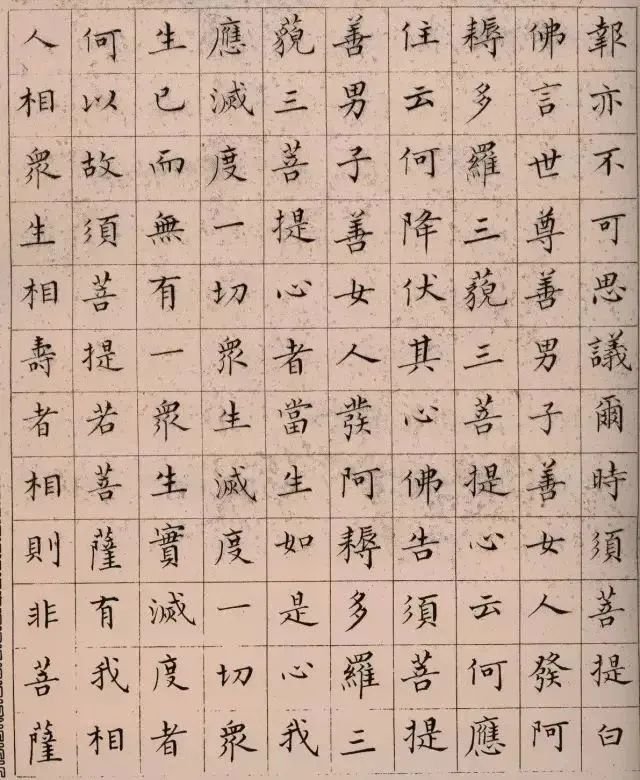 報亦不可思議爾時須菩提白
佛言世尊善男子善女人發阿
耨多羅三藐三菩提心云何應
住云何降伏其心佛告須菩提
善男子善女人發阿耨多羅三
藐三菩提心者當生如是心我
應滅度一切眾生滅度一切眾
生已而無有一眾生實滅度者
何以故須菩提若菩薩有我相
人相眾生相壽者相則非菩薩